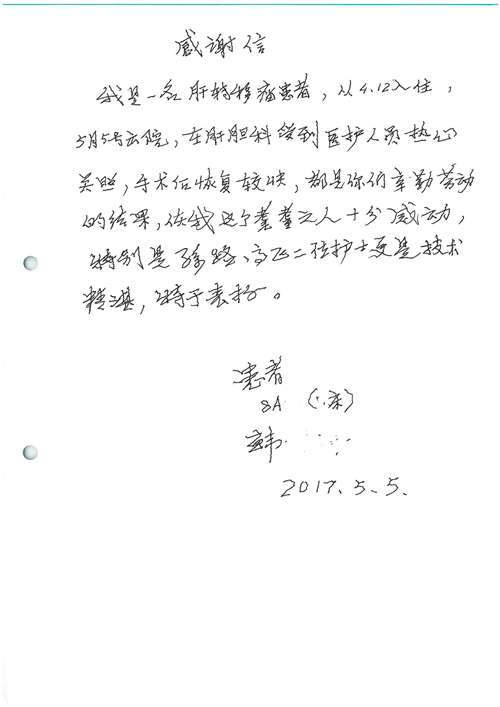 感谢信
我是一名肝转移癌患者，从4.12入住，
5月5号出院，在肝胆科受到医护人员热心
关照，手术后恢复较快，都是你们辛勤劳动
的结果，使我这个耄耋之人十分感动，
特别是孙路、高飞二位护士更是技术
精湛，特于表扬。
患者
8A （床）
2017.5.5.